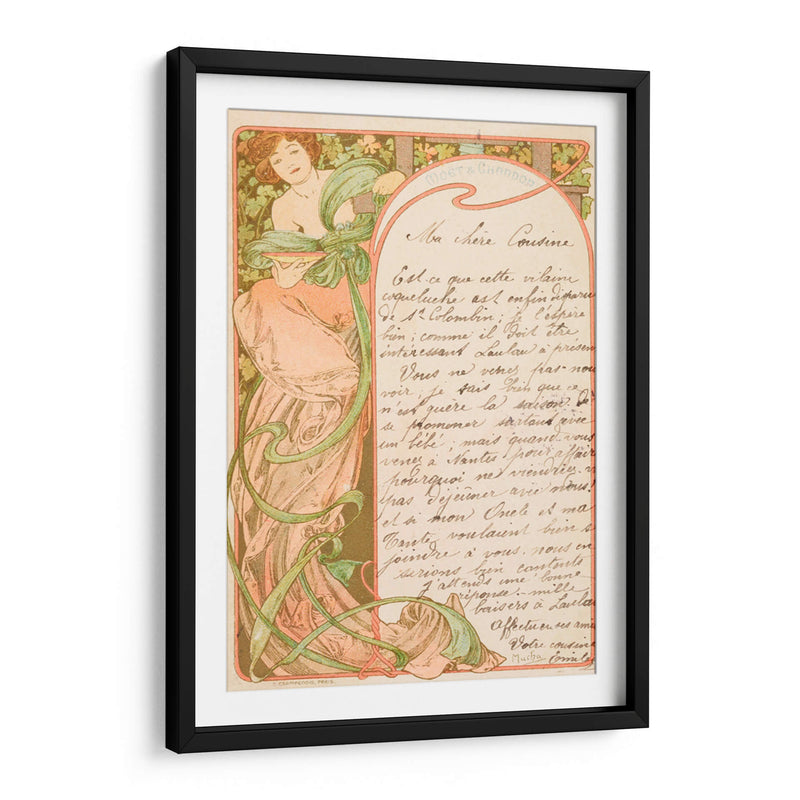 MOËT & CHANDON
Ma chère Cousine
Est ce que cette vilaine
coqueluche est enfin disparue
de St Colombin; je l'espère
bien; comme il doit être
intéressant Laulau à présen
Vous ne venez pas nou
voir, je sais bien que ce
n'est guère la saison de
se promener surtout avec
un bébé; mais quand vous
venez à Nantes pour affair
pourquoi ne viendriez v
pas déjeûner avec nous!
et si mon Oncle et ma
Tante voulaient bien s
joindre à vous, nous en
serions bien contents
J'attends une bonne
réponse. mille
baisers à Laulau
Affectueuses ami
Votre cousine
Mucha
F. CHAMPENOIS, PARIS.